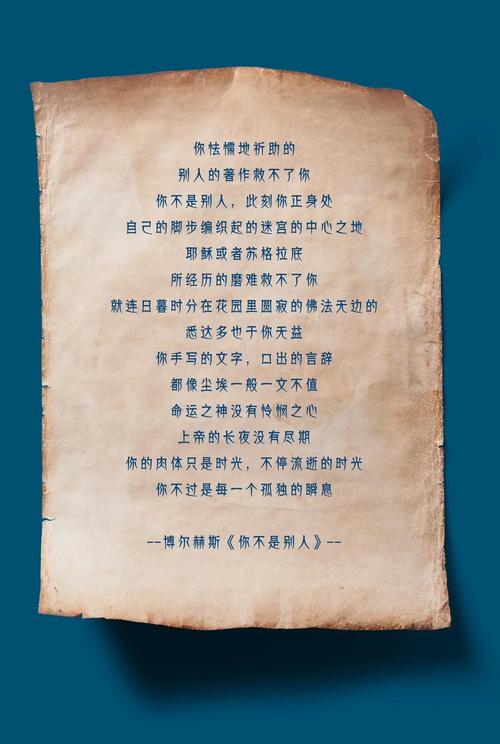 你怯懦地祈助的
别人的著作救不了你
你不是别人，此刻你正身处
自己的脚步编织起的迷宫的中心之地
耶稣或者苏格拉底
所经历的磨难救不了你
就连日暮时分在花园里圆寂的佛法无边的
悉达多也于你无益
你手写的文字，口出的言辞
都像尘埃一般一文不值
命运之神没有怜悯之心
上帝的长夜没有尽期
你的肉体只是时光，不停流逝的时光
你不过是每一个孤独的瞬息
--博尔赫斯《你不是别人》--